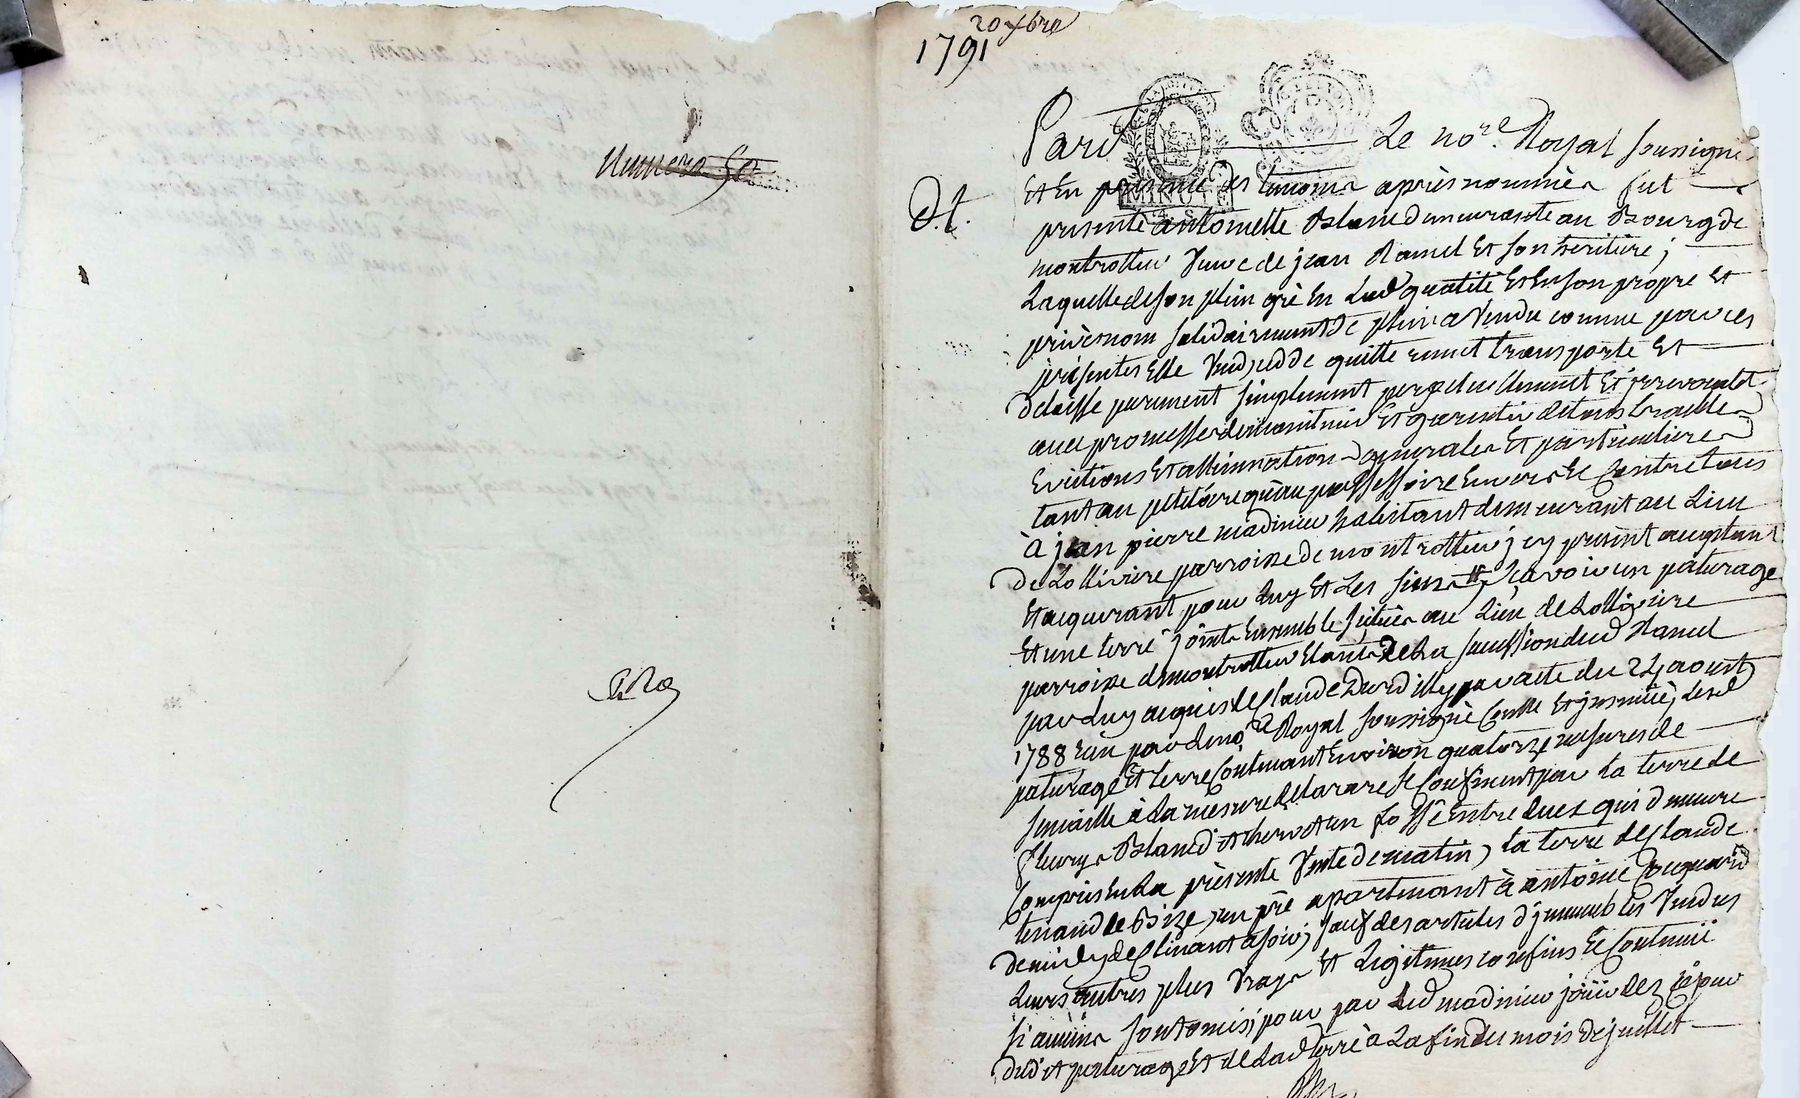 20 xbre
1791
Numero 50
Pard^t Le no^re. Royal soussigné
d.t.
MINUTE
4. S.
Et En presence des temoins après nommés fut
presente antoinette Blanc demeurante au Bourg de
montrottier Veuve de jean Ramel Et son heritiere ;
Laquelle de son plein gré En Lad^e qualité Et En son propre Et
privé nom solidairement de plein a Vendu comme par ces
présentes Elle Vend, cedde quitte remet transporte Et
delaisse purement simplement perpetuellement Et irrevocablet.
avec promesse de maintenir Et garentir de tous troubles
Evictions Et allienations generales Et particulieres
tant au petitoire qu'au possessoire Envers Et Contre tous
à jean pierre madinier habitant demeurant au Lieu
de Lollivière parroisse de montrottier, icy présent acceptant
Et acquerant pour Luy Et Les siens sçavoir un paturage
Et une terre joints Ensemble situés au Lieu de Lollivière
parroisse de montrottier Etants de La succession dud Ramel
par Luy acquis de Claude Durdilly par acte du 24 aoust
1788 reçu par Le no^re Royal soussigné Contt Et insinué, Lesd
paturage Et terre Contenant Environ quatorze mesures de
semaille à La mesure de tarare Se Confinent par La terre de
fleury Blanc d'other et un fossé Entre deux qui demeure
Compris En La présente Vente de matin, La terre de Claude
tenaud de Bize, un pré apartenant à antoine Coquard
de midy declinant a soir, sauf desarticles d'jmmeubles Vendus
Leurs autres plus Vrays Et Legitimes confins Et Contenüe
si aucuns sont omis, pour par Led madinier joüir dez ce jour
dud^it paturage Et de Lad^e terre à La fin du mois de juillet